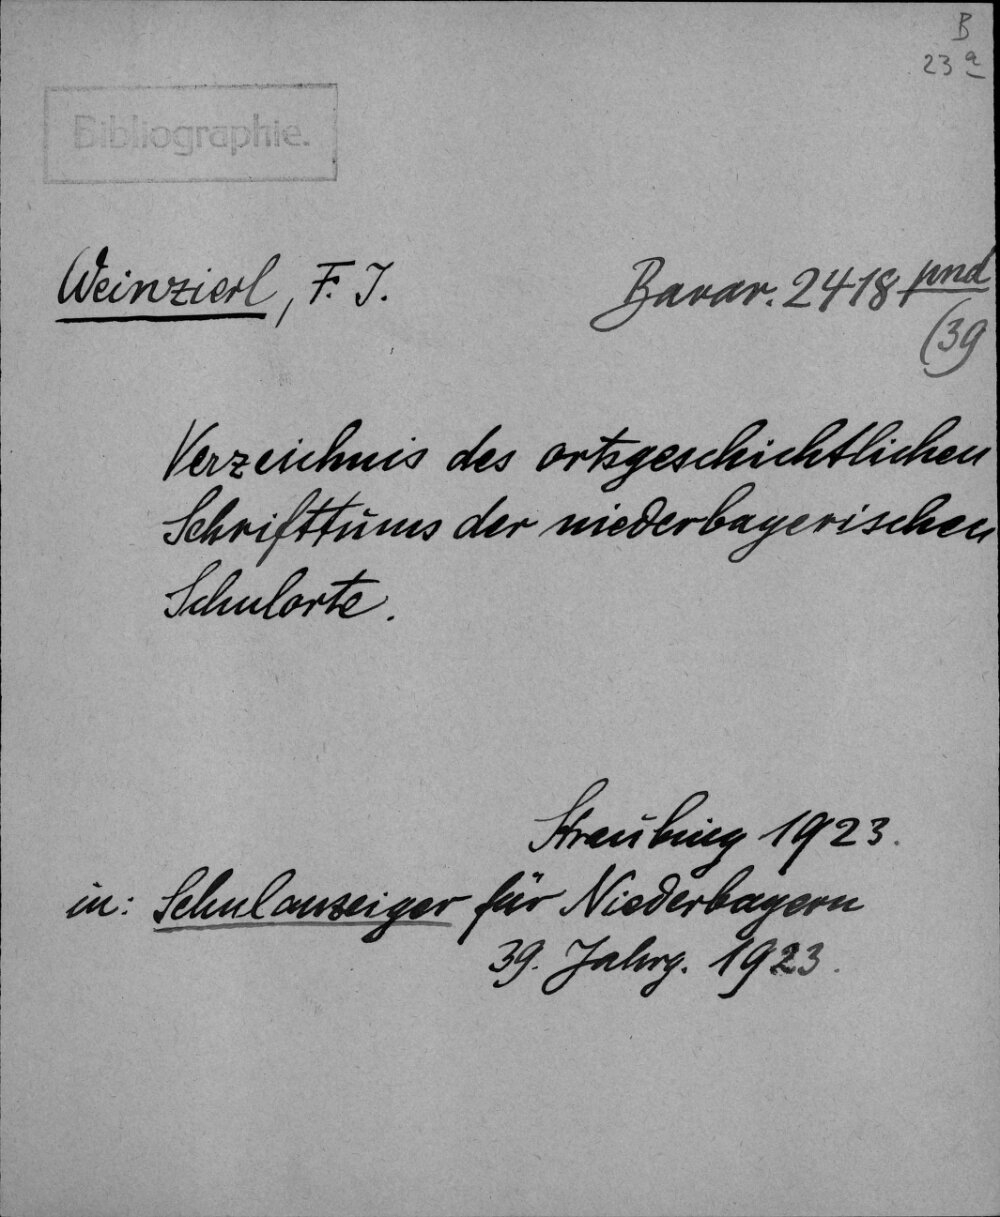 B
23 a
Bibliographie.
Weinzierl, F. J.
Bavar. 2418 pnd
(39
Verzeichnis des ortsgeschichtlichen
Schrifttums der niederbayerischen
Schulorte.
Straubing 1923.
in: Schulanzeiger für Niederbayern
39. Jahrg. 1923.